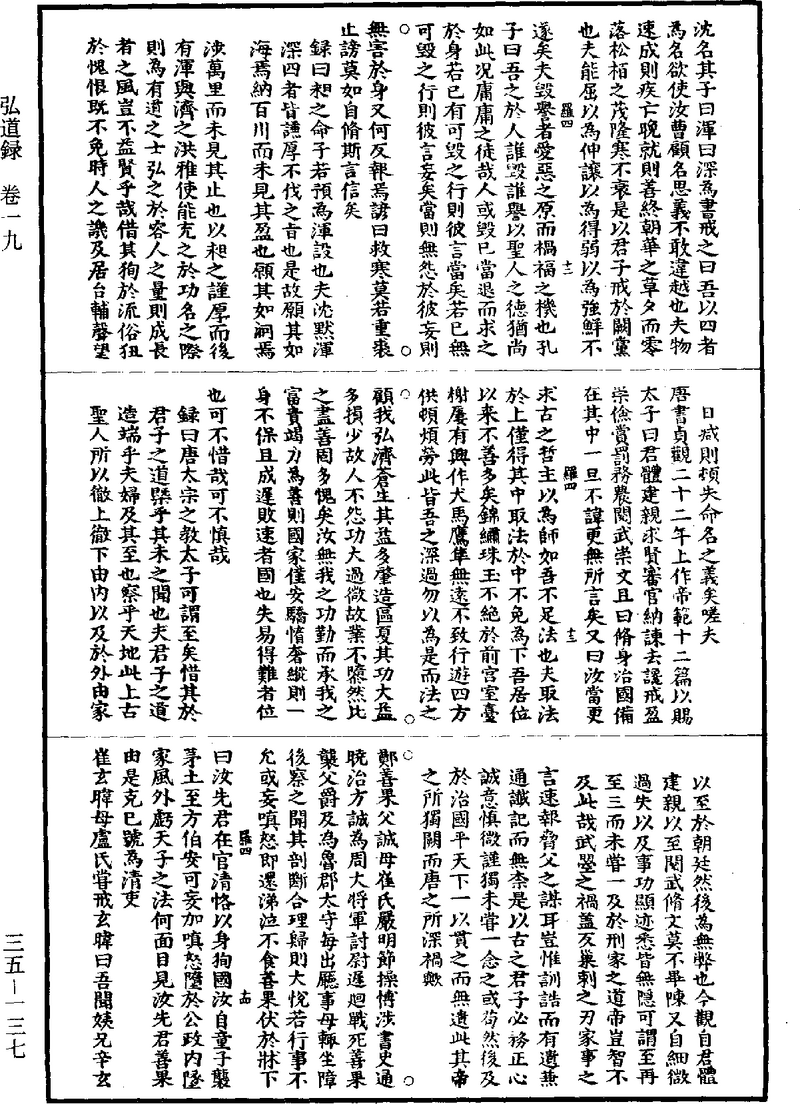 弘道録　卷一九
三五—一三七
沈名其子曰渾曰深為書戒之曰吾以四者
為名欲使汝曹顧名思義不敢違越也夫物
速成則疾亡晚就則善終朝華之草夕而零
落松栢之茂隆寒不衰是以君子戒於闕黨
也夫能屈以為伸讓以為得弱以為強鮮不
羅四
十二
遂矣夫毀譽者愛惡之原而禍福之機也孔
子曰吾之於人誰毀誰譽以聖人之德猶尚
如此況庸庸之徒哉人或毀已當退而求之
於身若已有可毀之行則彼言當矣若已無
可毀之行則彼言妄矣當則無怨於彼妄則
○
無害於身又何反報焉諺曰救寒莫若重裘
止謗莫如自脩斯言信矣
錄曰昶之命子若預為渾設也夫沈默渾
深四者皆謙厚不伐之旨也是故願其如
海焉納百川而未見其盈也願其如洞焉
涉萬里而未見其止也以昶之謹厚而後
有渾與濟之洪雅使能充之於功名之際
則為有道之士弘之於容人之量則成長
者之風豈不益賢乎哉借其狥於流俗狃
於愧恨既不免時人之譏及居台輔聲望
日減則頓失命名之義矣嗟夫
唐書貞觀二十二年上作帝範十二篇以賜
太子曰君體建親求賢審官納諫去讒戒盈
崇儉賞罰務農閱武崇文且曰脩身治國備
在其中一旦不諱更無所言矣又曰汝當更
羅四
十三
求古之哲主以為師如吾不足法也夫取法
於上僅得其中取法於中不免為下吾居位
以來不善多矣錦繡珠玉不絕於前宮室臺
榭屢有興作犬馬鷹隼無遠不致行遊四方
供頓煩勞此皆吾之深過勿以為是而法之
○
顧我弘濟蒼生其益多肇造區夏其功大益
多損少故人不怨功大過微故業不墮然比
之盡善固多愧矣汝無我之功勤而承我之
富貴竭力為善則國家僅安驕惰奢縱則一
身不保且成遲敗速者國也失易得難者位
也可不惜哉可不慎哉
錄曰唐太宗之教太子可謂至矣惜其於
君子之道槩乎其未之聞也夫君子之道
造端乎夫婦及其至也察乎天地此上古
聖人所以徹上徹下由內以及於外由家
以至於朝廷然後為無弊也今觀自君體
建親以至閱武脩文莫不畢陳又自細微
過失以及事功顯迹悉皆無隱可謂至再
至三而未嘗一及於刑家之道帝豈智不
及此哉武曌之禍蓋亥巢剌之刃家事之
言速報脅父之謀耳豈惟訓誥而有遺兼
通讖記而無柰是以古之君子必務正心
誠意慎微謹獨未嘗一念之或苟然後及
於治國平天下一以貫之而無遺此其帝
之所獨闕而唐之所深禍歟
○
鄭善果父誠母崔氏嚴明節操博涉書史通
曉治方誠為周大將軍討尉遲迴戰死善果
襲父爵及為魯郡太守每出廳事母輒坐障
後察之聞其剖斷合理歸則大悅若行事不
允或妄嗔怒即還涕泣不食善果伏於牀下
羅四
十四
曰汝先君在官清恪以身狥國汝自童子襲
茅土至方伯安可妄加嗔怒墮於公政內墜
家風外虧天子之法何面目見汝先君善果
由是克已號為清吏
崔玄暐母盧氏嘗戒玄暐曰吾聞姨兄辛玄